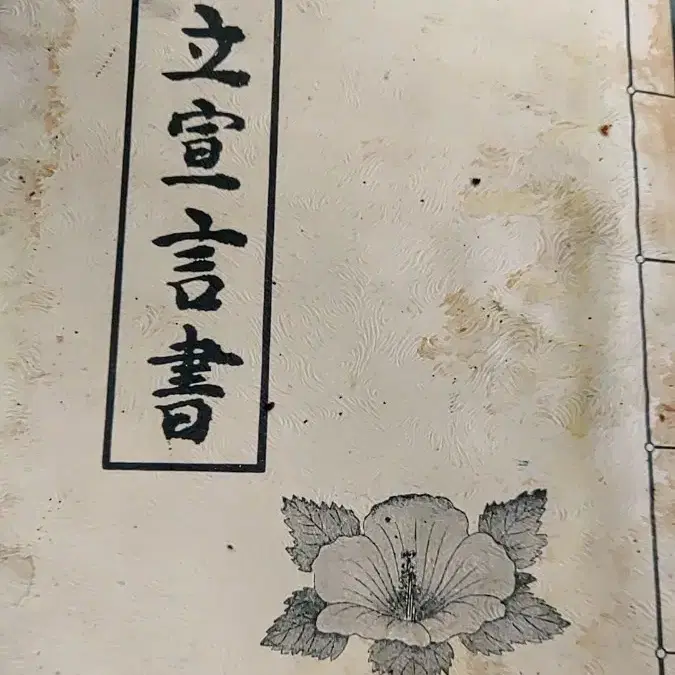 立宣言書